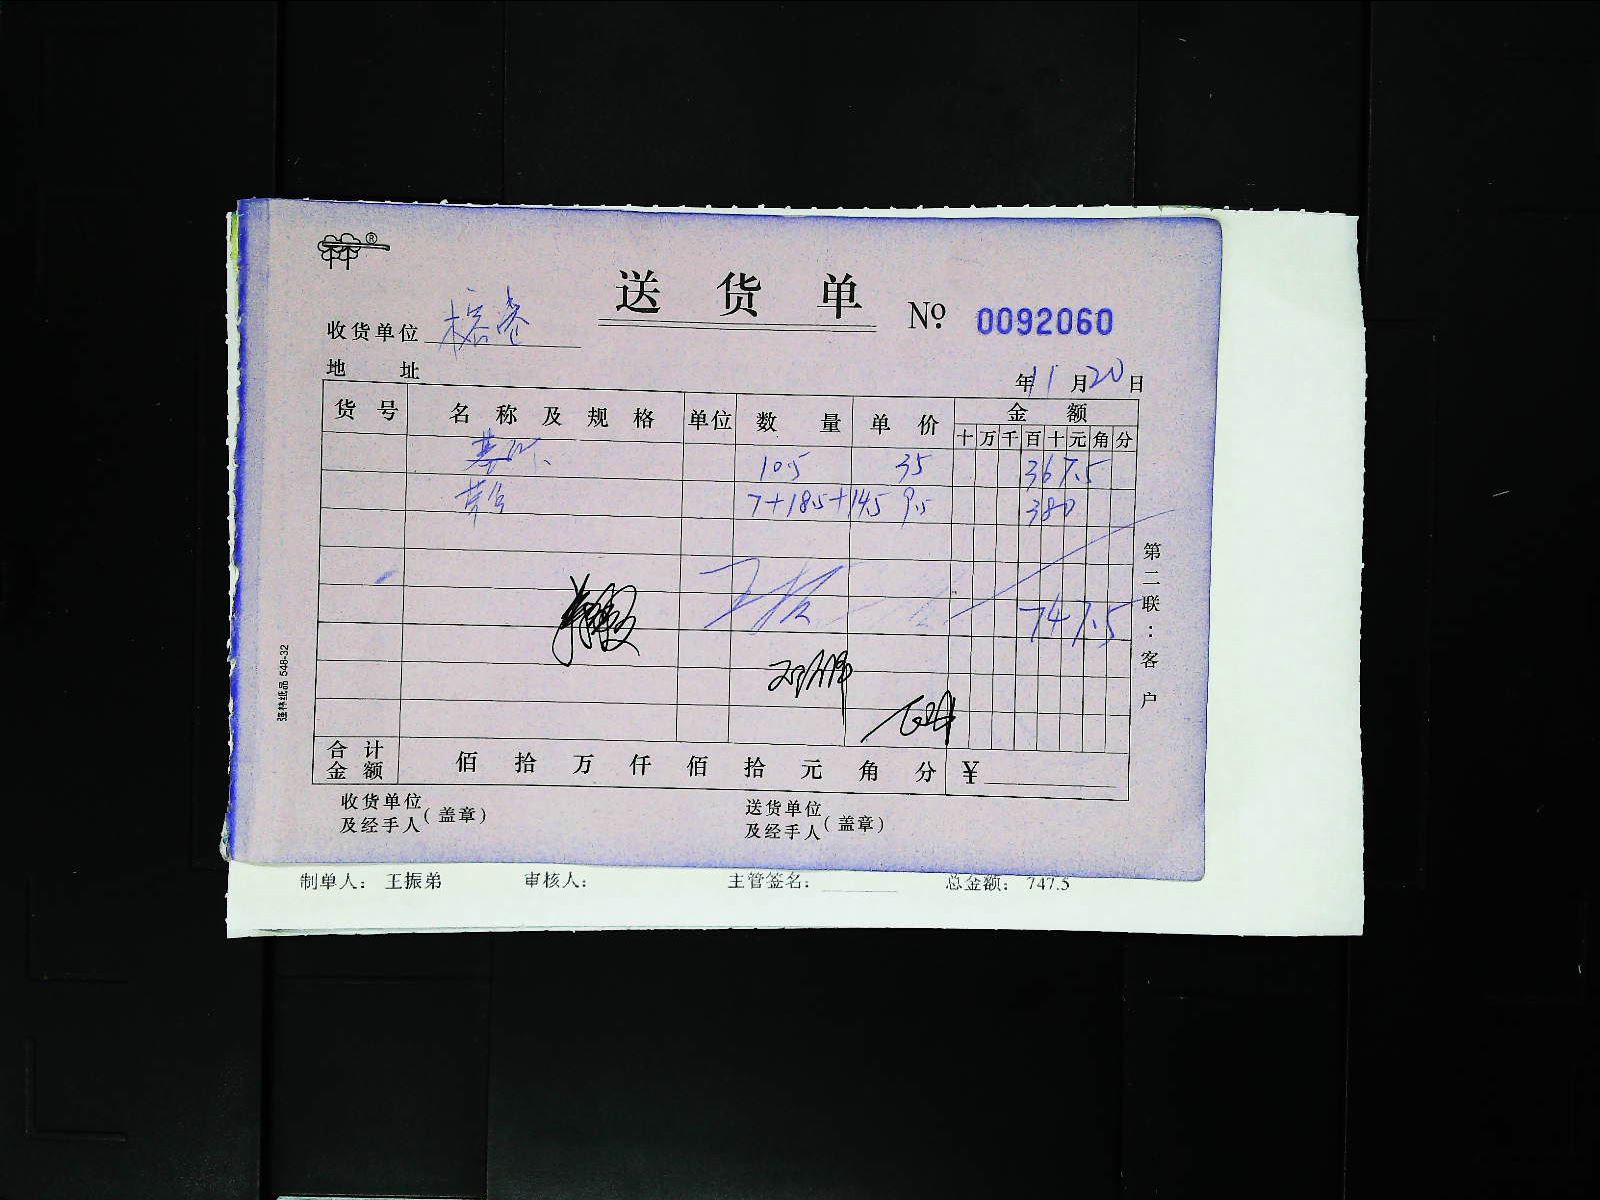 送货单 № 0092060
收货单位
地 址
年11月20日
货号 名称及规格 单位 数量 单价 金额
十万千百十元角分
10.5 35 367.5
7+18.5+14.5 9.5 380
747.5
合计金额 佰 拾 万 仟 佰 拾 元 角 分 ¥
收货单位及经手人(盖章) 送货单位及经手人(盖章)
第二联:客户
强林纸品 548-32
制单人: 王振弟 审核人: 主管签名: 总金额: 747.5